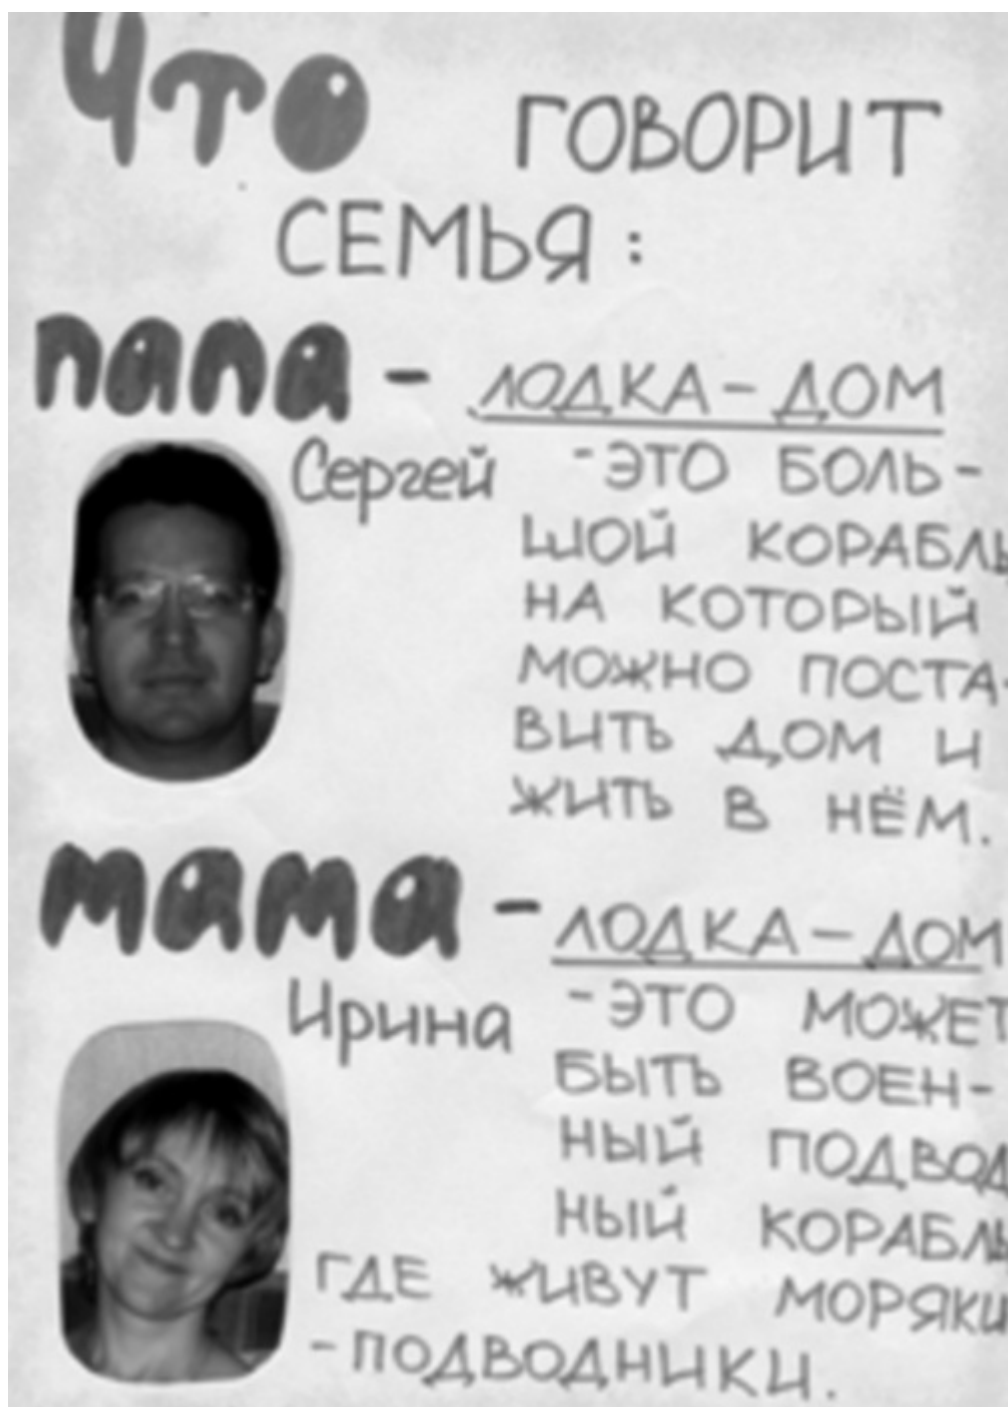 Что ГОВОРИТ
СЕМЬЯ:
папа - ЛОДКА - ДОМ
Сергей - ЭТО БОЛЬ-
ШОЙ КОРАБЛЬ
НА КОТОРЫЙ
МОЖНО ПОСТА-
ВИТЬ ДОМ И
ЖИТЬ В НЁМ.
мама - ЛОДКА - ДОМ
Ирина - ЭТО МОЖЕТ
БЫТЬ ВОЕН-
НЫЙ ПОДВОД
НЫЙ КОРАБЛЬ
ГДЕ ЖИВУТ МОРЯКИ
- ПОДВОДНИКИ.